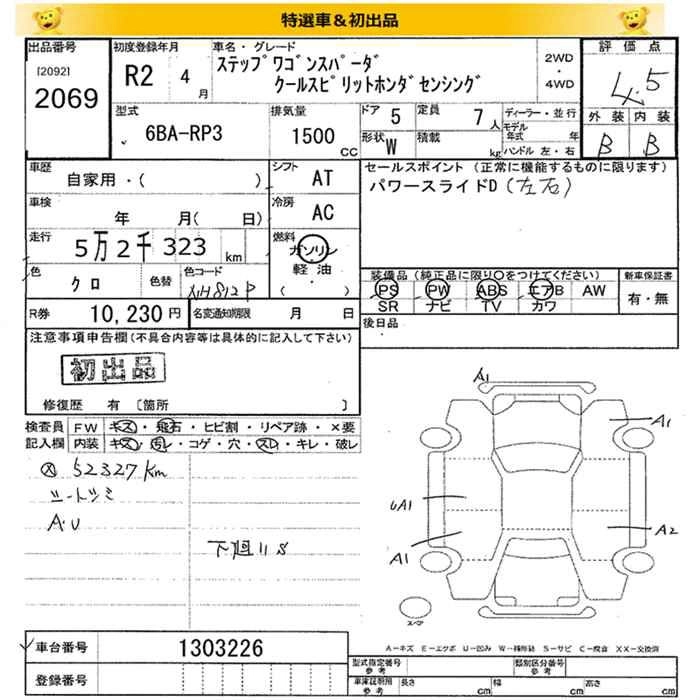 特選車&初出品
出品番号 初度登録年月 車名・グレード 評価点
[2092] R2 4月 ステップワゴンスパーダ 2WD・4WD 4.5
2069 クールスピリットホンダセンシング
型式 排気量 ドア 5 定員 7人 ディーラー・並行 外装 内装
6BA-RP3 1500CC 形状 W 積載 kg モデル年式 年 B B
ハンドル 左・右
車歴 シフト セールスポイント(正常に機能するものに限ります)
自家用・( ) AT パワースライドD(左右)
車検 冷房
年 月( 日) AC
走行 燃料
5万2千323km ガソリン
軽油・
( )
色 色替 色コード 装備品(純正品に限り○をつけてください) 新車保証書
クロ NH812P PS PW ABS エアB AW 有・無
SR ナビ TV カワ
R券 10,230円 名変通知期限 月 日 後日品
注意事項申告欄(不具合内容等は具体的に記入して下さい)
初出品
修復歴 有 〔箇所 〕
検査員 FW キズ・飛石・ヒビ割・リペア跡・×要
記入欄 内装 キズ・汚レ・コゲ・穴・スレ・キレ・破レ
52327km
A・U
A1
A1
UA1
A1
A2
車台番号 1303226
登録番号
A-キズ E-エクボ U-凹み W-補修跡 S-サビ C-腐食 XX-交換済
型式指定番号 参考 類別区分番号 参考
車庫証明用 参考 長さ cm 幅 cm 高さ cm